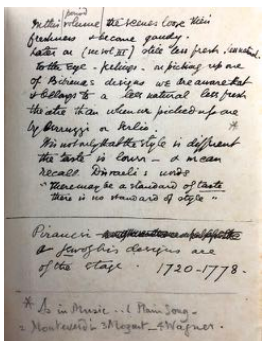 (period)
In this volume the scenes lose their
freshness & become gaudy.
Later on (in vol III) still less fresh
to the eye - feelings. on picking up one
of Bibiena's designs we are aware that
it belongs to a less natural less fresh
theatre than when we picked up one
by Peruzzi or Serlio. *
It is not only that the style is different
the taste is lower - & I mean
recall Disraeli's words
"There may be a standard of taste
there is no standard of style"
Piranesi
a few of his designs are
of the stage. 1720-1778.
* As in Music .. 1 Plain Song -
2 Monteverdi - 3 Mozart - 4 Wagner.